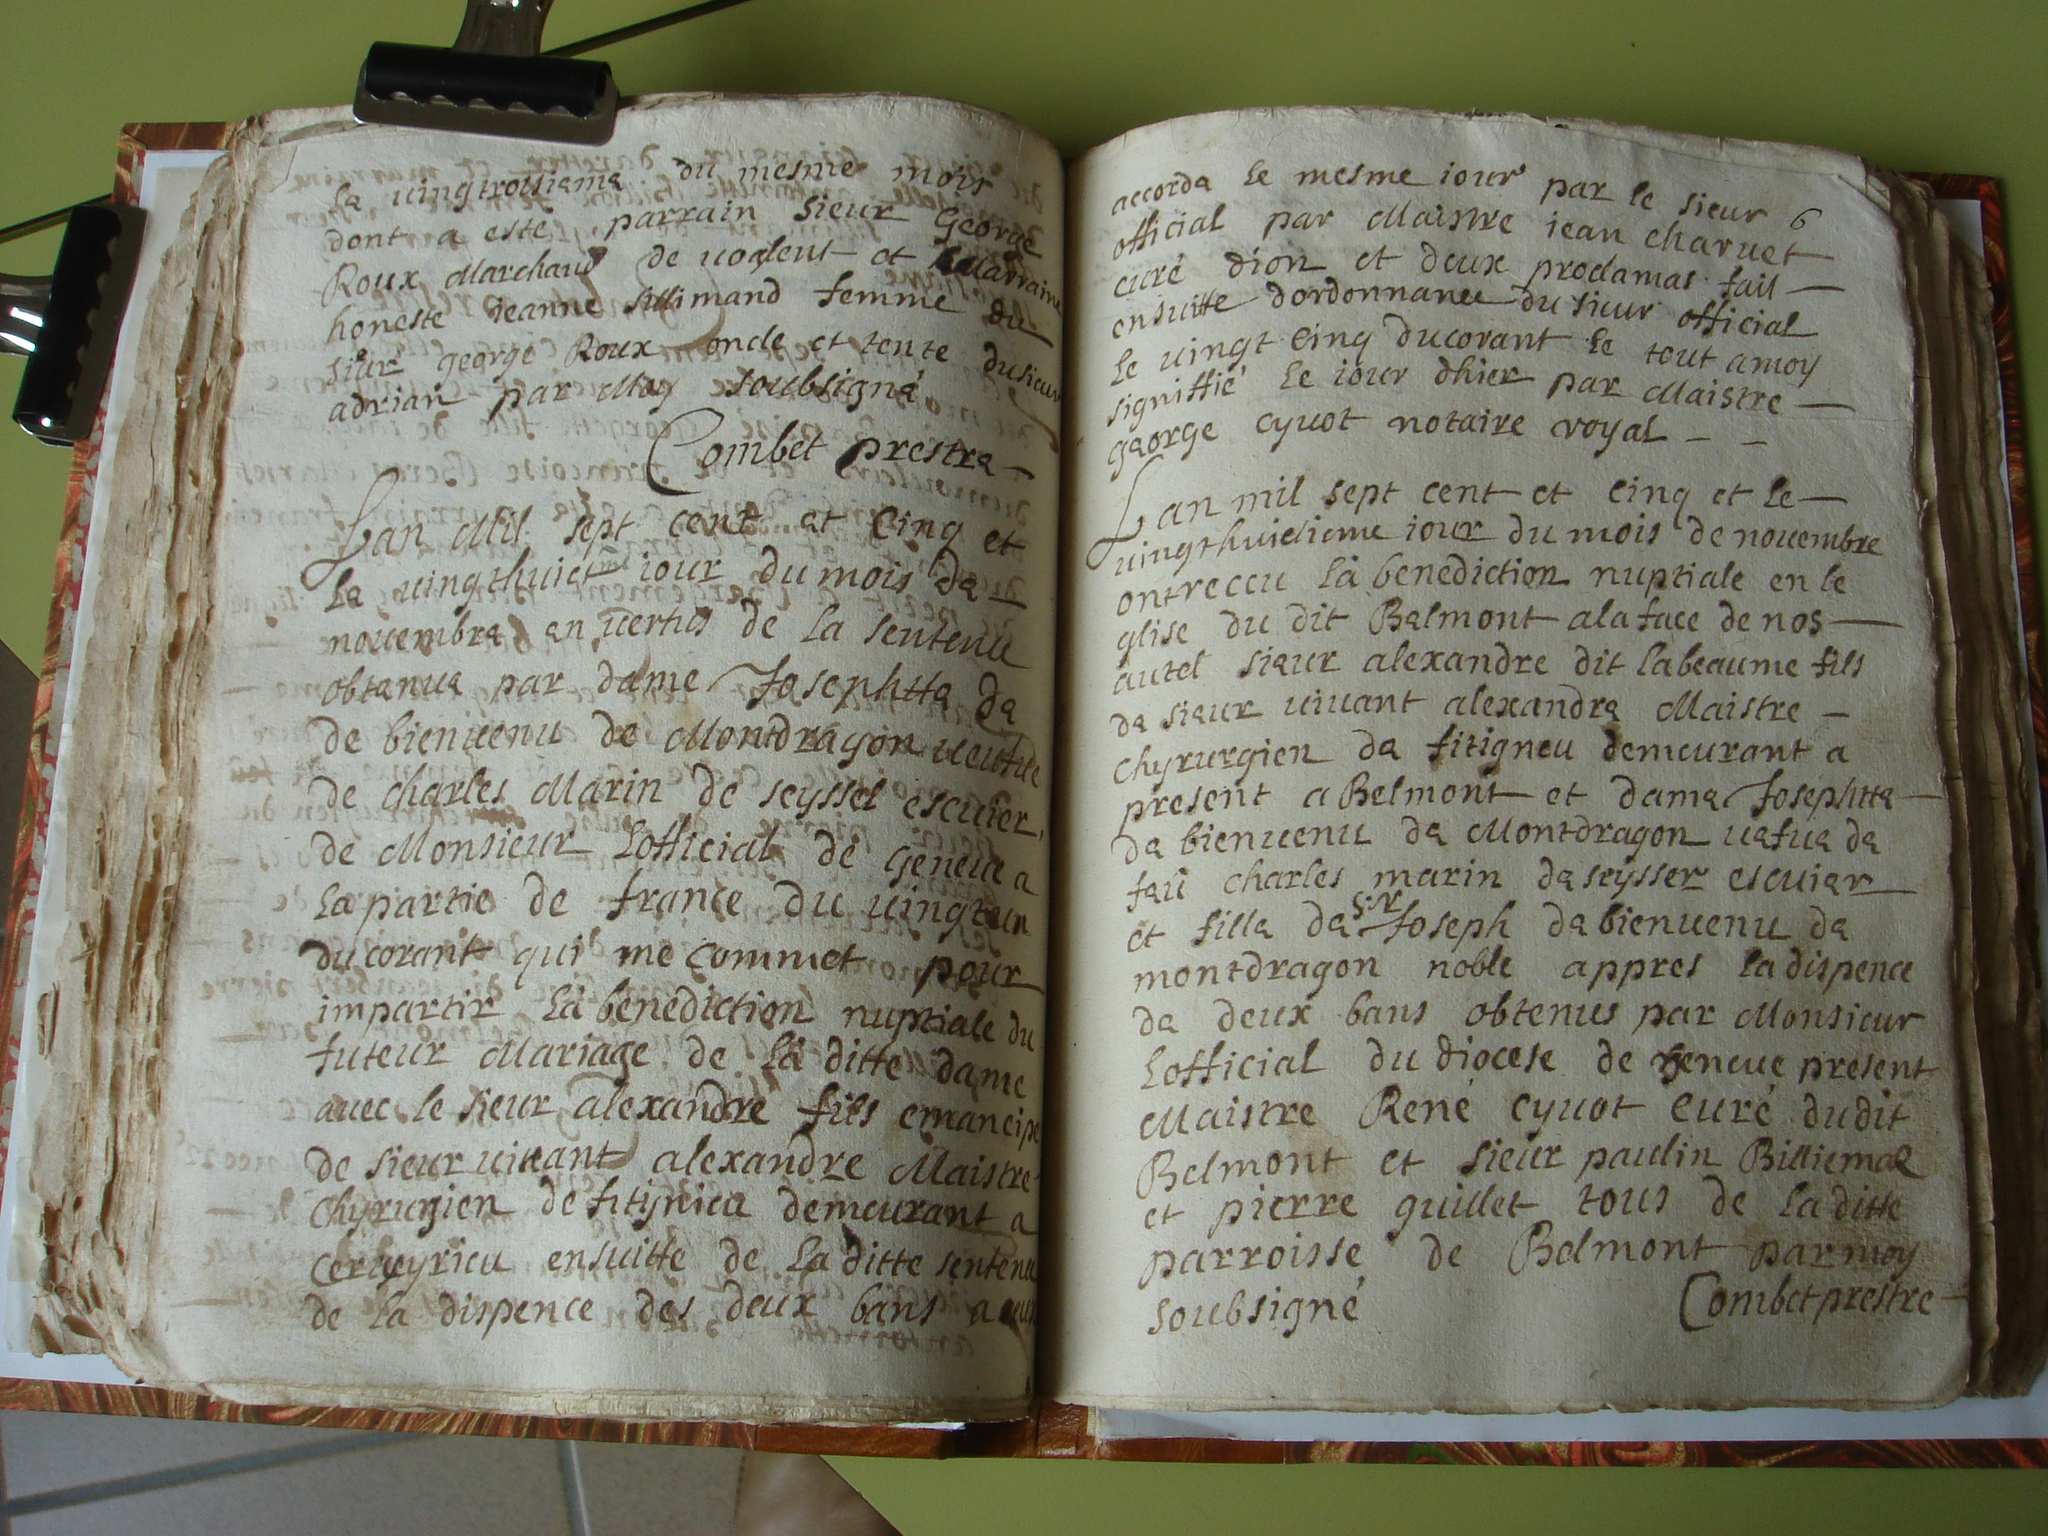 la vingtroisiema du mesme mois
dont a este parrain sieur George
Roux Marchand de et Marraine
honeste ieanne sillimand femme du
sieur george Roux oncle et tente du sieur
adrian par Moy soubsigné
Combet prestra
Lan Mil sept cent et cinq et
la vingthuict iour du mois da
nouembra an uertus de la sentenu
obtanua par dame Josephtta da
de bienuenu de Montdragon
de charles Marin de seyssel escuier,
de Monsieur Lofficial de Geneue a
la partie de france du uingtun
du corant qui me commet pour
impartir la benediction nuptiale du
futeur Mariage de la ditte dame
auec le sieur alexandre fils emancipe
de sieur uiuant alexandre Maistre
Chyrurgien de demeurant a
ceruyrieu ensuitte de la ditte sentenu
de la dispence des deux bans a
accorda le mesme iour par le sieur 6
official par Maistre iean charuet
curé dion et deux proclamas fait
ensuitte dordonnance du sieur official
le uingt cinq ducorant le tout a moy
signiffié le iour dhier par Maistre
george cyuot notaire royal
Lan mil sept cent et cinq et le
uingthuidieme iour du mois de nouembre
ont reccu la benediction nuptiale en le
glise du dit Balmont a la face de nos
autel sieur alexandre dit labeaume fils
da sieur uiuant alexandra Maistre
chyrurgien da fitigneu demeurant a
present a Belmont et dama Josephtta
da bienuenu da Montdragon uafua da
faü charles marin da seysser escuiar
et filla da S:r Joseph da bienuenu da
montdragon noble appres la dispence
da deux bans obtenus par Monsieur
Lofficial du diocese de Geneue present
Maistre René cyuot curé dudit
Belmont et sieur paulin
et pierre guillet tous de la ditte
parroisse de Belmont par moy
soubsigné Combet prestre